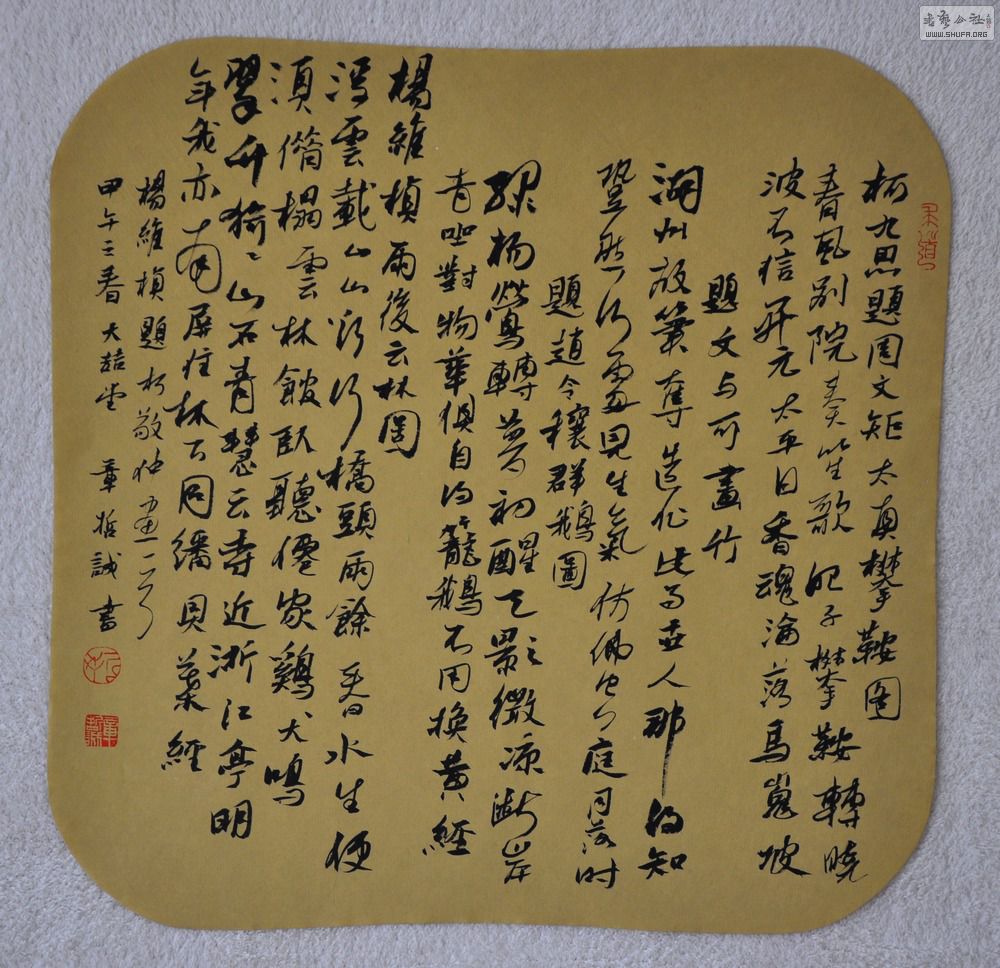 柯九思題周文矩太真攀鞍圖
春風別院奏笙歌妃子攀鞍轉曉
波不信開元太平日香魂淪落馬嵬坡
題文与可畫竹
湖州放筆奪造化此事世人那得知
跫然何處見生氣仿佛空庭月落時
題趙令穰群鵝圖
綠楊鶯轉夢初醒天影微凉漸岸
青坐對物華俱自得籠鵝不用換黃經
楊維楨雨後云林圖
浮雲載山山欲行橋頭雨餘春水生便
須借榻雲林館臥聽僊家雞犬鳴
翠竹猗〻山石青慧云寺近浙江亭明
年我亦南屏住林下同繙貝葉經
楊維楨題柯敬仲畫一首
甲午之春大喆堂 章哲誠書
書藝公社
WWW.SHUFA.ORG